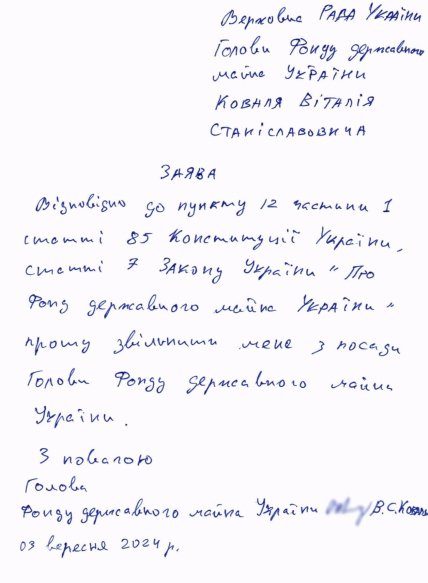 Верховна РАДА УКРАЇНИ
Голови Фонду державного
майна УКРАЇНИ
КОВАЛЯ ВІТАЛІЯ
СТАНІСЛАВОВИЧА
ЗАЯВА
Відповідно до пункту 12 частини 1
статті 85 Конституції України,
статті 7 ЗАКОНУ України "Про
Фонд державного майна УКРАЇНИ"
прошу звільнити мене з посади
Голови Фонду державного майна
України.
З повагою
Голова
Фонду державного майна України В.С.Коваль
03 вересня 2024 р.